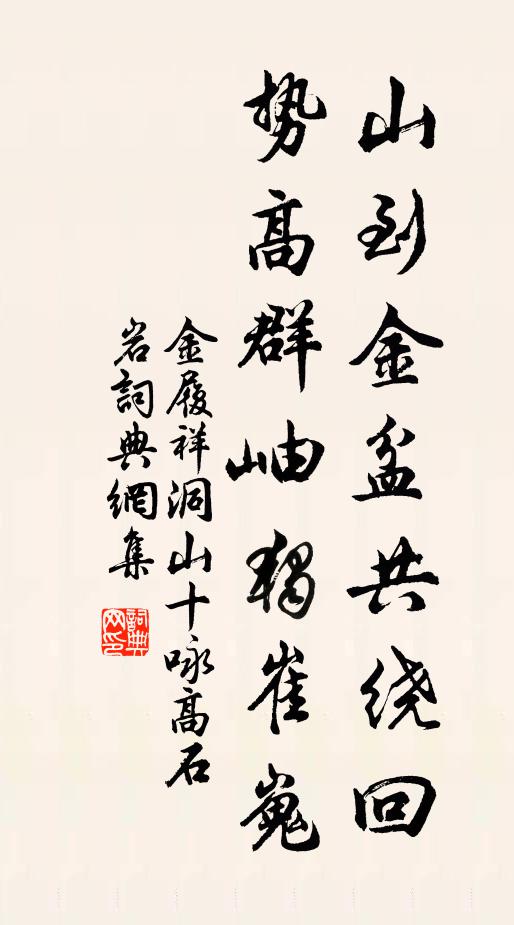 山到金盆共绕回
势高群岫独崔嵬
金履祥洞山十咏高石
岩詞典網集
詞典网印